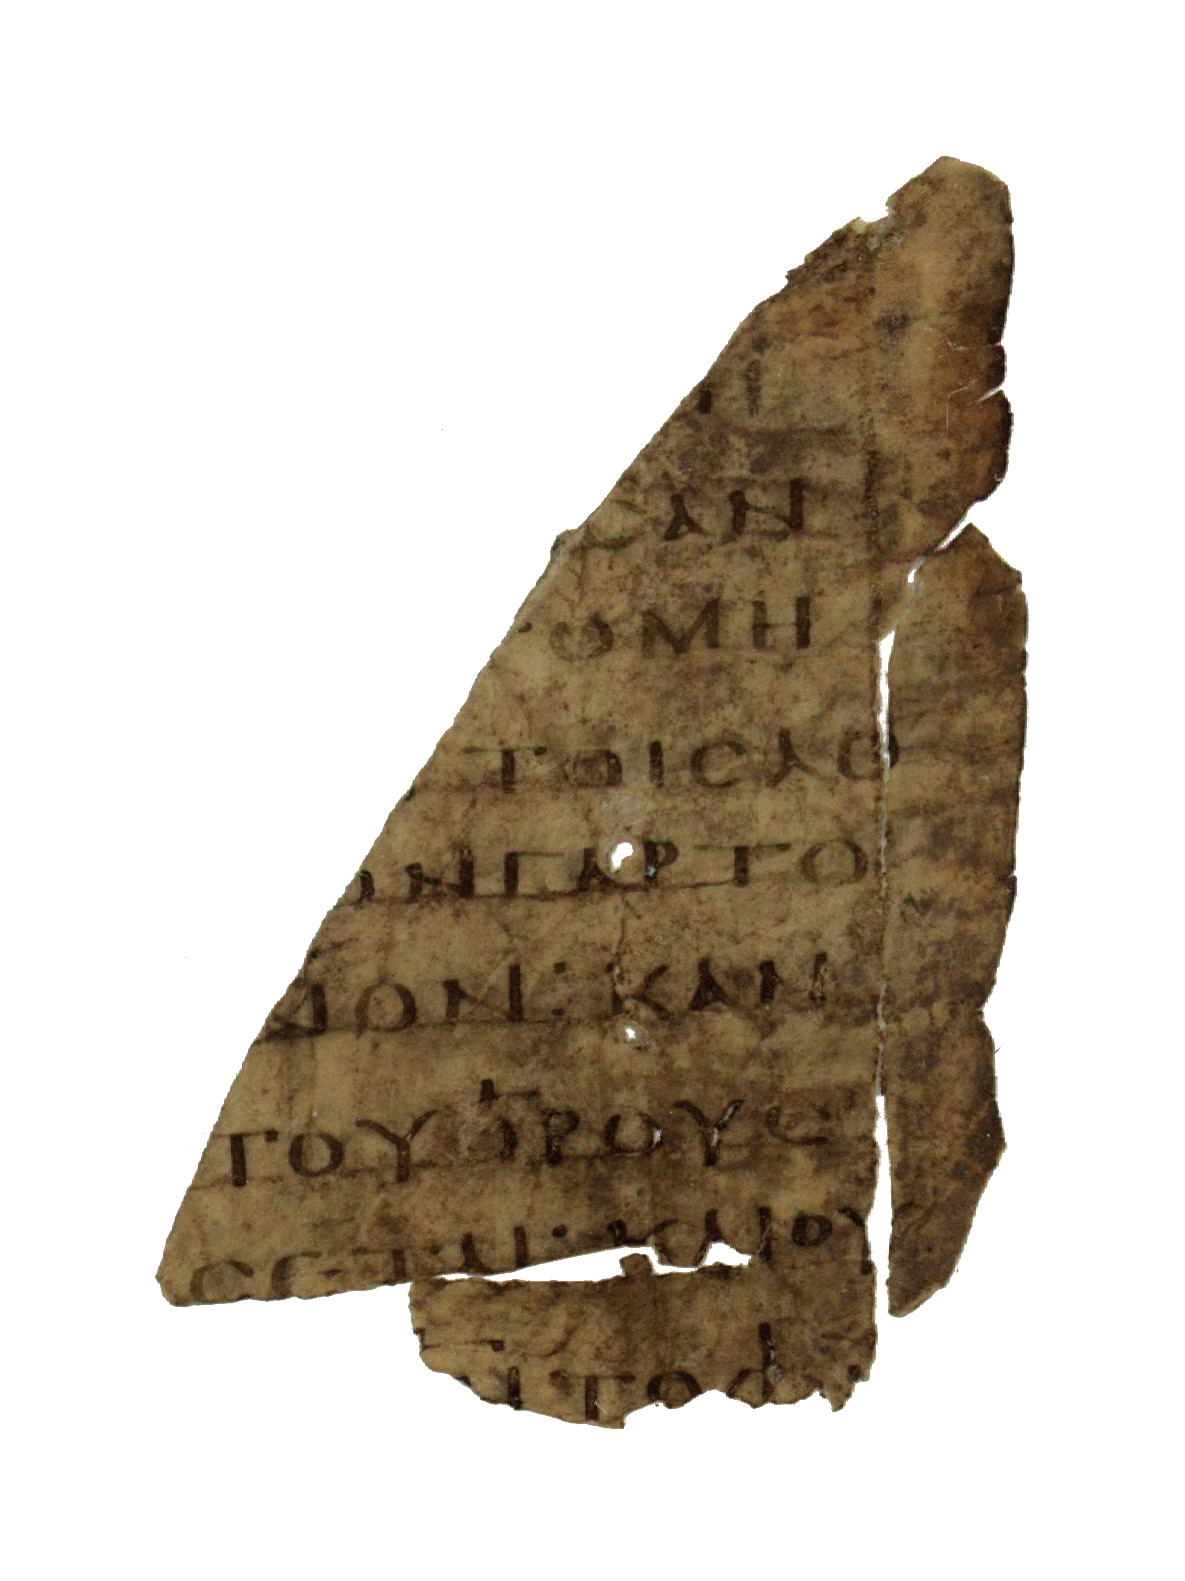 ΑΝ
ΟΜΗ
ΤΟΙΣΛΟ
ΟΝΓΑΡΤΟ
ΔΟΝ· ΚΑΝ
ΤΟΥΟΡΟΥΣ
ΣΕΤΑΙ· ΚΑΙΡΥ
ΝΤΟΦ